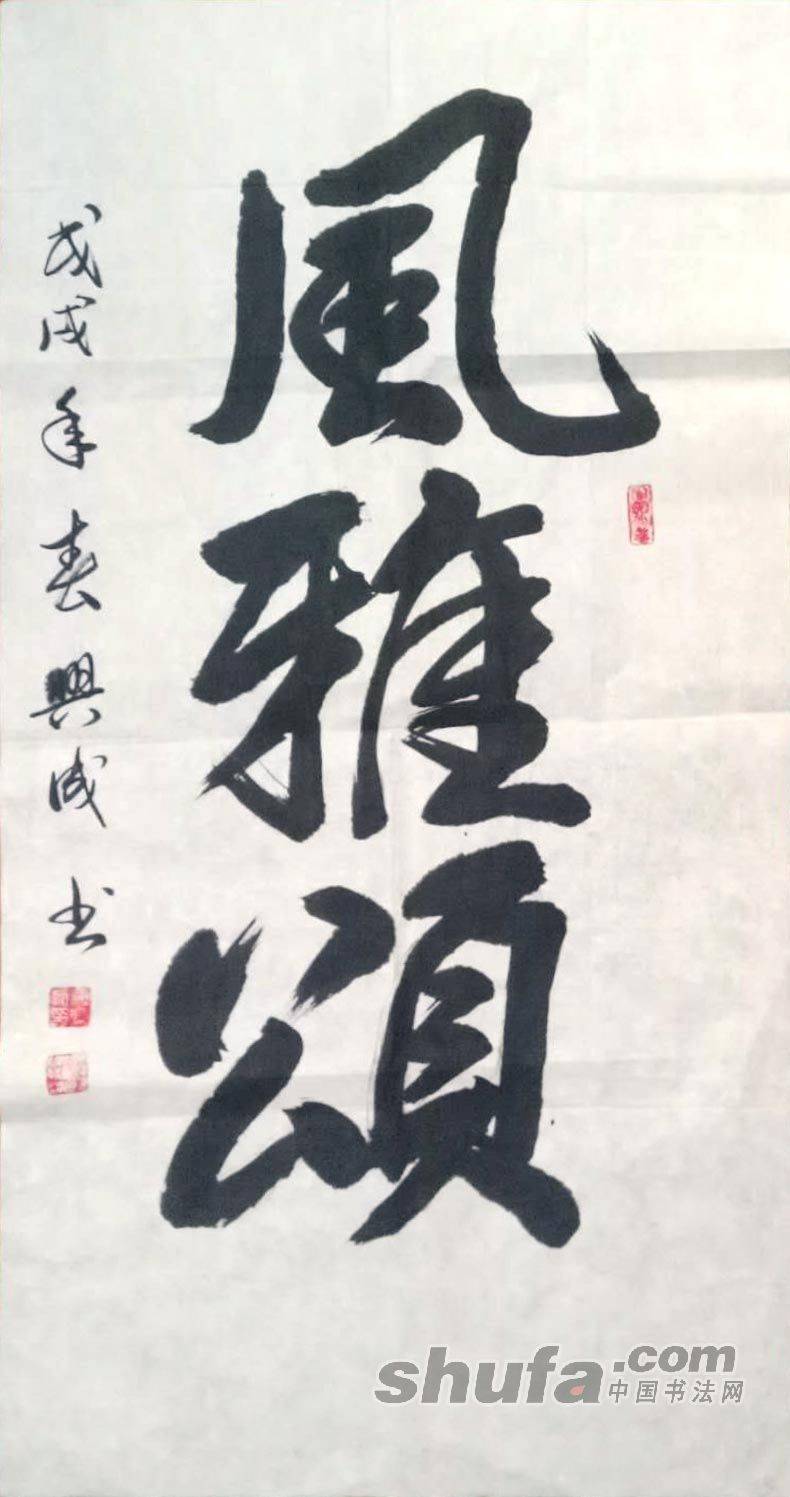 風雅頌
戊戌年春興成书
shufa.com
中国书法网